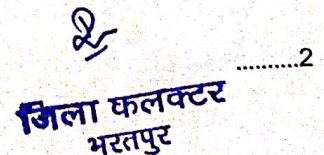 ..........2
जिला कलक्टर
भरतपुर